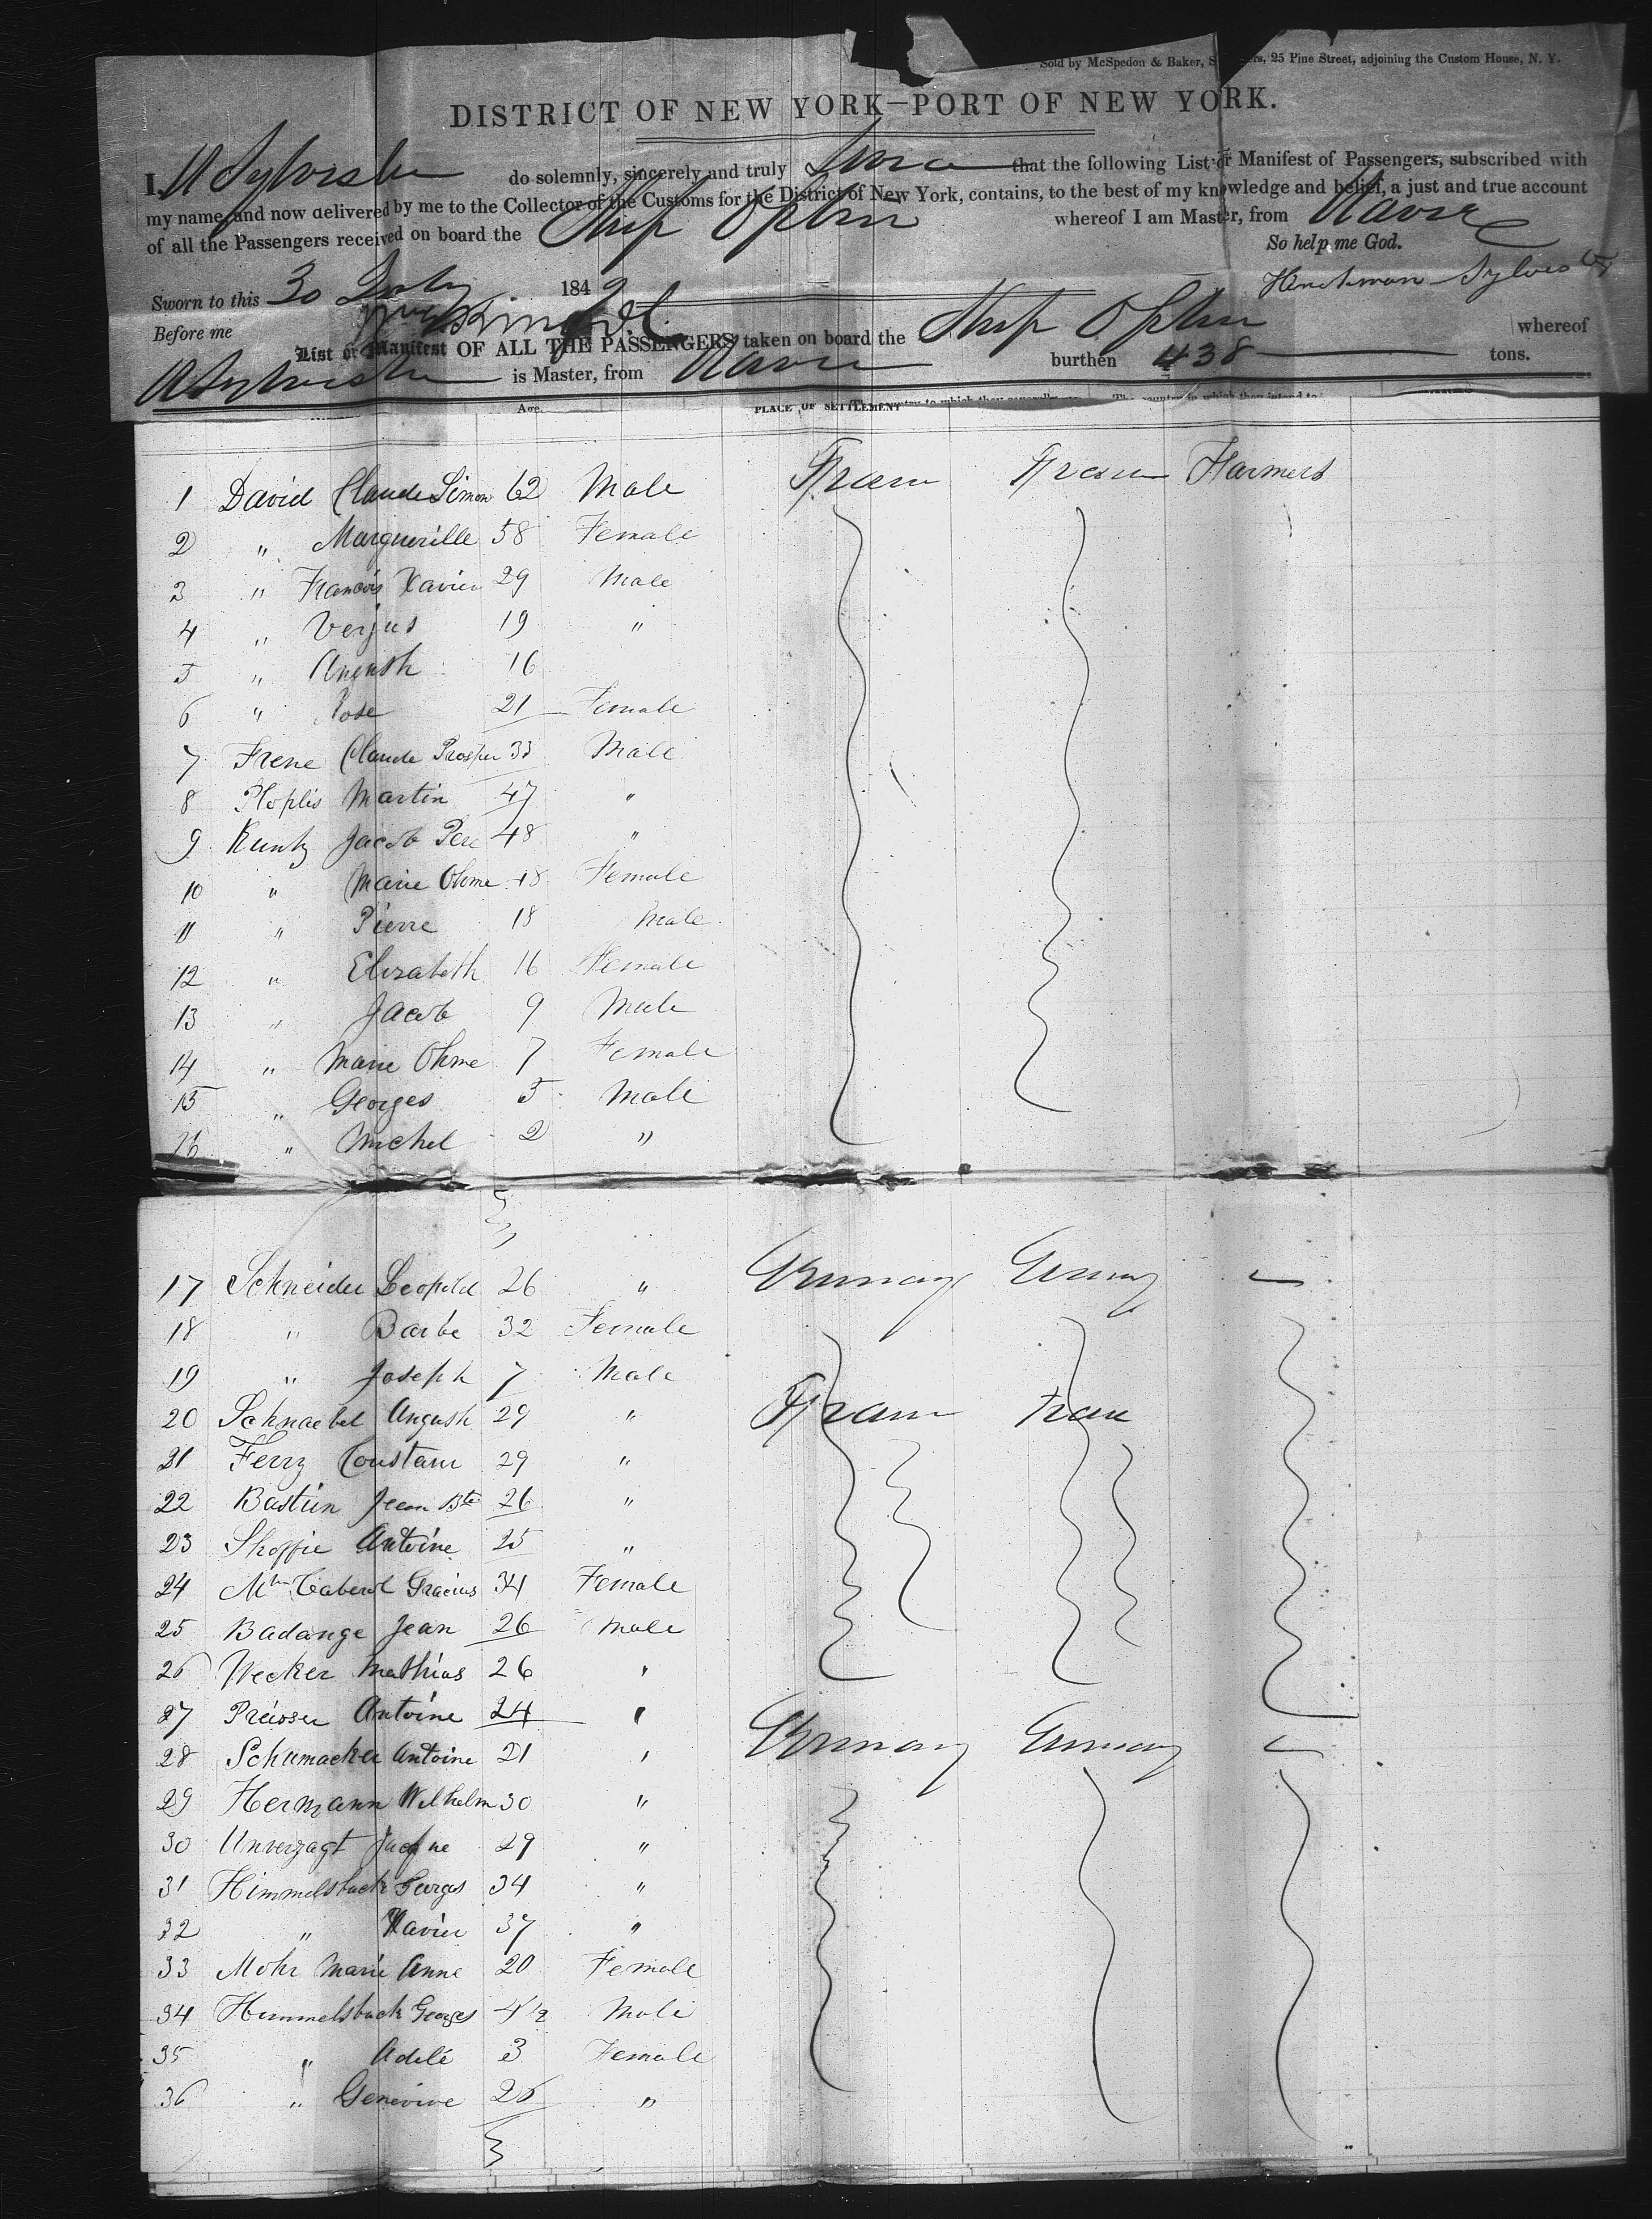 Sold by McSpedon & Baker, 25 Pine Street, adjoining the Custom House, N. Y.
DISTRICT OF NEW YORK—PORT OF NEW YORK.
I, H Sylvester do solemnly, sincerely and truly that the following List or Manifest of Passengers, subscribed with
my name, and now delivered by me to the Collector of the Customs for the District of New York, contains, to the best of my knowledge and belief, a just and true account
of all the Passengers received on board the Ship whereof I am Master, from Havre
So help me God.
Sworn to this 30 July 1849 Hinchman Sylvester
Before me
List or Manifest OF ALL THE PASSENGERS taken on board the Ship whereof
H Sylvester is Master, from Havre burthen 438 tons.
Age. PLACE OF SETTLEMENT
1 David Claude Simon 62 Male Farmers
2 " Marguerille 58 Female
3 " Francois Xavier 29 Male
4 " Verjus 19 "
5 " 16
6 " Rose 21 Female
7 Frene Claude Prosper 33 Male
8 Ploplis Martin 47 "
9 Kuntz Jacob Pere 48 "
10 " Marie Ohme 48 Female
11 " Pierre 18 Male
12 " Elizabeth 16 Female
13 " Jacob 9 Male
14 " Marie Ohme 7 Female
15 " Georges 5 Male
16 " Michel 2 "
17 Schneider Leopold 26 "
18 " Barbe 32 Female
19 " Joseph 7 Male
20 Schnaebel 29 "
21 Ferry 29 "
22 Bastien Jean Bte 26 "
23 Antoine 25 "
24 34 Female
25 Badange Jean 26 Male
26 Wecker Mathias 26 "
27 Preisser Antoine 24 "
28 Schumacker Antoine 21 "
29 Hermann Wilhelm 30 "
30 Unverzagt Jacque 29 "
31 Himmelsback Georges 34 "
32 " Xavier 37 "
33 Mohr Marie Anne 20 Female
34 Himmelsback Georges 4 1/2 Male
35 " Adele 3 Female
36 " Genevive "